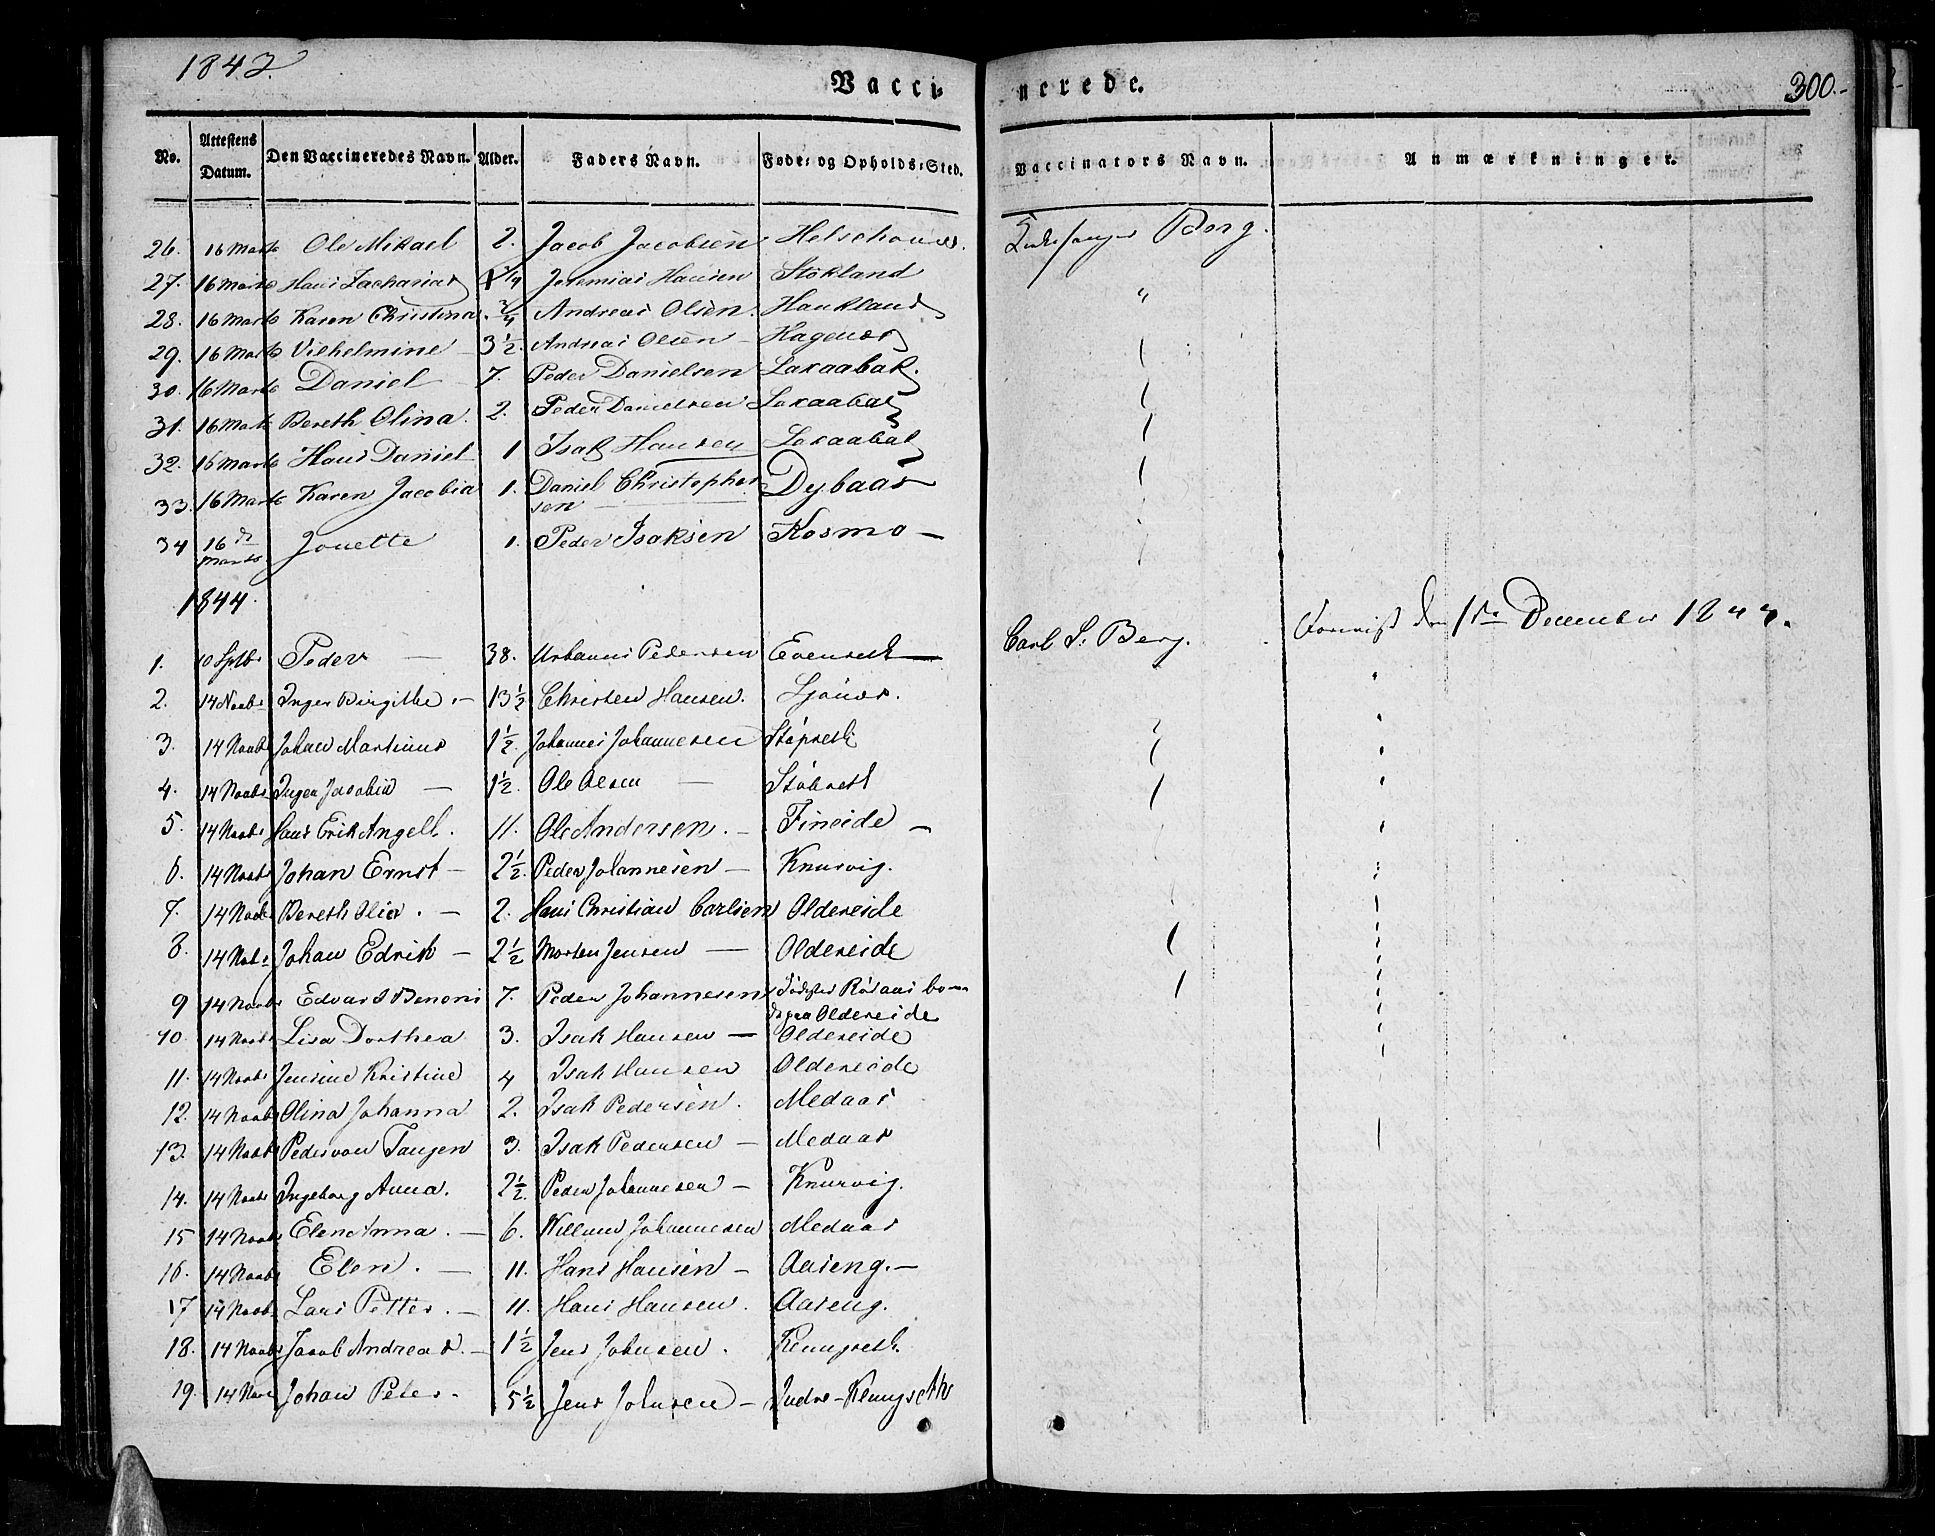 1843.
Vaccinerede.
300.
No. Attestens Datum. Den Vaccineredes Navn. Alder. Faders Navn. Føde- og Opholds-Sted. Vaccinators Navn. Anmærkninger.
26. 16 Marts Ole Mikael 2. Jacob Jacobsen Berg.
27. 16 Marts Hans Zacharias Jeremias Hansen Stokland "
28. 16 Marts Karen Christina 3/4 Andreas Olsen. Haukland
29. 16 Marts Vilhelmine 3 1/2. Andreas Olsen
30. 16 Marts Daniel 7. Peder Danielsen Laxaabak.
31. 16 Marts Bereth Olina. 2. Peder Danielsen Laxaabak
32. 16 Marts Hans Daniel 1 Isak Hansen Laxaabak
33. 16 Marts Karen Jacobia 1. Daniel Christopher
sen
34 16 de Marts Jonette 1. Peder Isaksen Kosmo
1844.
1. 10 Sptbr Peder 38. Urbanus Pedersen Evenseth Carl S. Berg. 1ste December
2. 14 Novbr Inger Birgithe. 13 1/2 Christen Hansen.
3. 14 Novbr Johan Martinus 1 1/2. Johannes Johannesen Støpseth
4. 14 Novbr Inger Jacobia 1 1/2. Ole Olsen
5. 14 Novbr Hans Erik Angell. 11. Ole Andersen. Fineide
6. 14 Novbr Johan Ernst 2 1/2. Peder Johannesen Knurvig.
7. 14 Novbr Bereth Olia. 2. Hans Christian Carlsen Oldereide
8. 14 Novbr Johan Edrik 2 1/2 Morten Jensen Oldereide
9 14 Novbr Edvard Benoni 7. Peder Johannesen
Oldereide
10. 14 Novbr Lisa Dorthea 3. Isak Hansen Oldereide
11. 14 Novbr Jensine Kristine 4 Isak Hansen Oldereide
12. 14 Novbr Olina Johanna 2. Isak Pedersen. Medaas
13. 14 Novbr Peder von Tangen 3. Isak Pedersen Medaas
14. 14 Novbr Ingeborg Anna. 2 1/2. Peder Johannesen Knurvig.
15 14 Novbr Elen Anna. 6. Johannesen Medaas
16. 14 Novbr Elen. 11. Hans Hansen Aaseng.
17 14 Novbr Lars Petter. 11. Hans Hansen. Aaseng.
18. 14 Novbr Jacob Andreas. 1 1/2 Jens Johnsen.
19. 14 Nov Johan Peter. 5 1/2 Jens Johnsen Indre